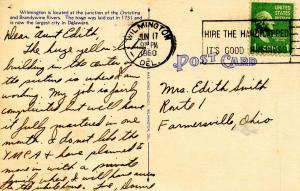 Wilmington is located at the junction of the Christina
and Brandywine Rivers. The town was laid out in 1731 and
is now the largest city in Delaware.
Dear Aunt Edith,
The huge yellow
building in the center of
the picture is where I am
working. My job is fairly
complicated but will have
it fully mastered in one
month. I do not like the
YMCA & have planned to
move in with a private
family where I will have access
to the kitchen. Love,
WILMINGTON
JUN 17
PM
1960
DEL.
HIRE THE HANDICAPPED
IT'S GOOD BUSINESS
POST CARD
Mrs. Edith Smith
Route 1
Farmersville, Ohio